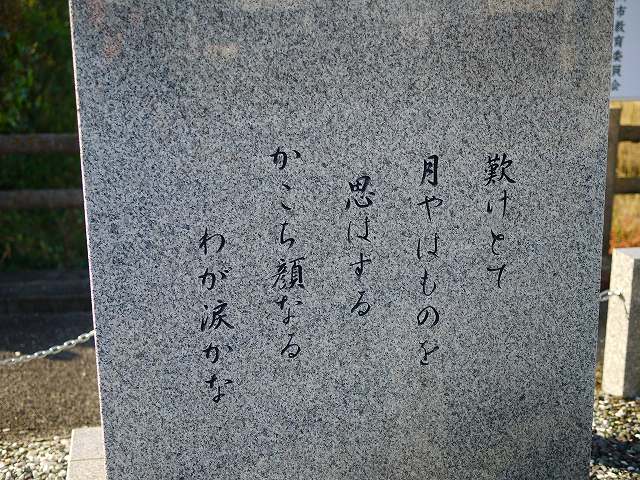 市教育委員会
歎けとて
月やはものを
思はする
かこち顔なる
わが涙かな